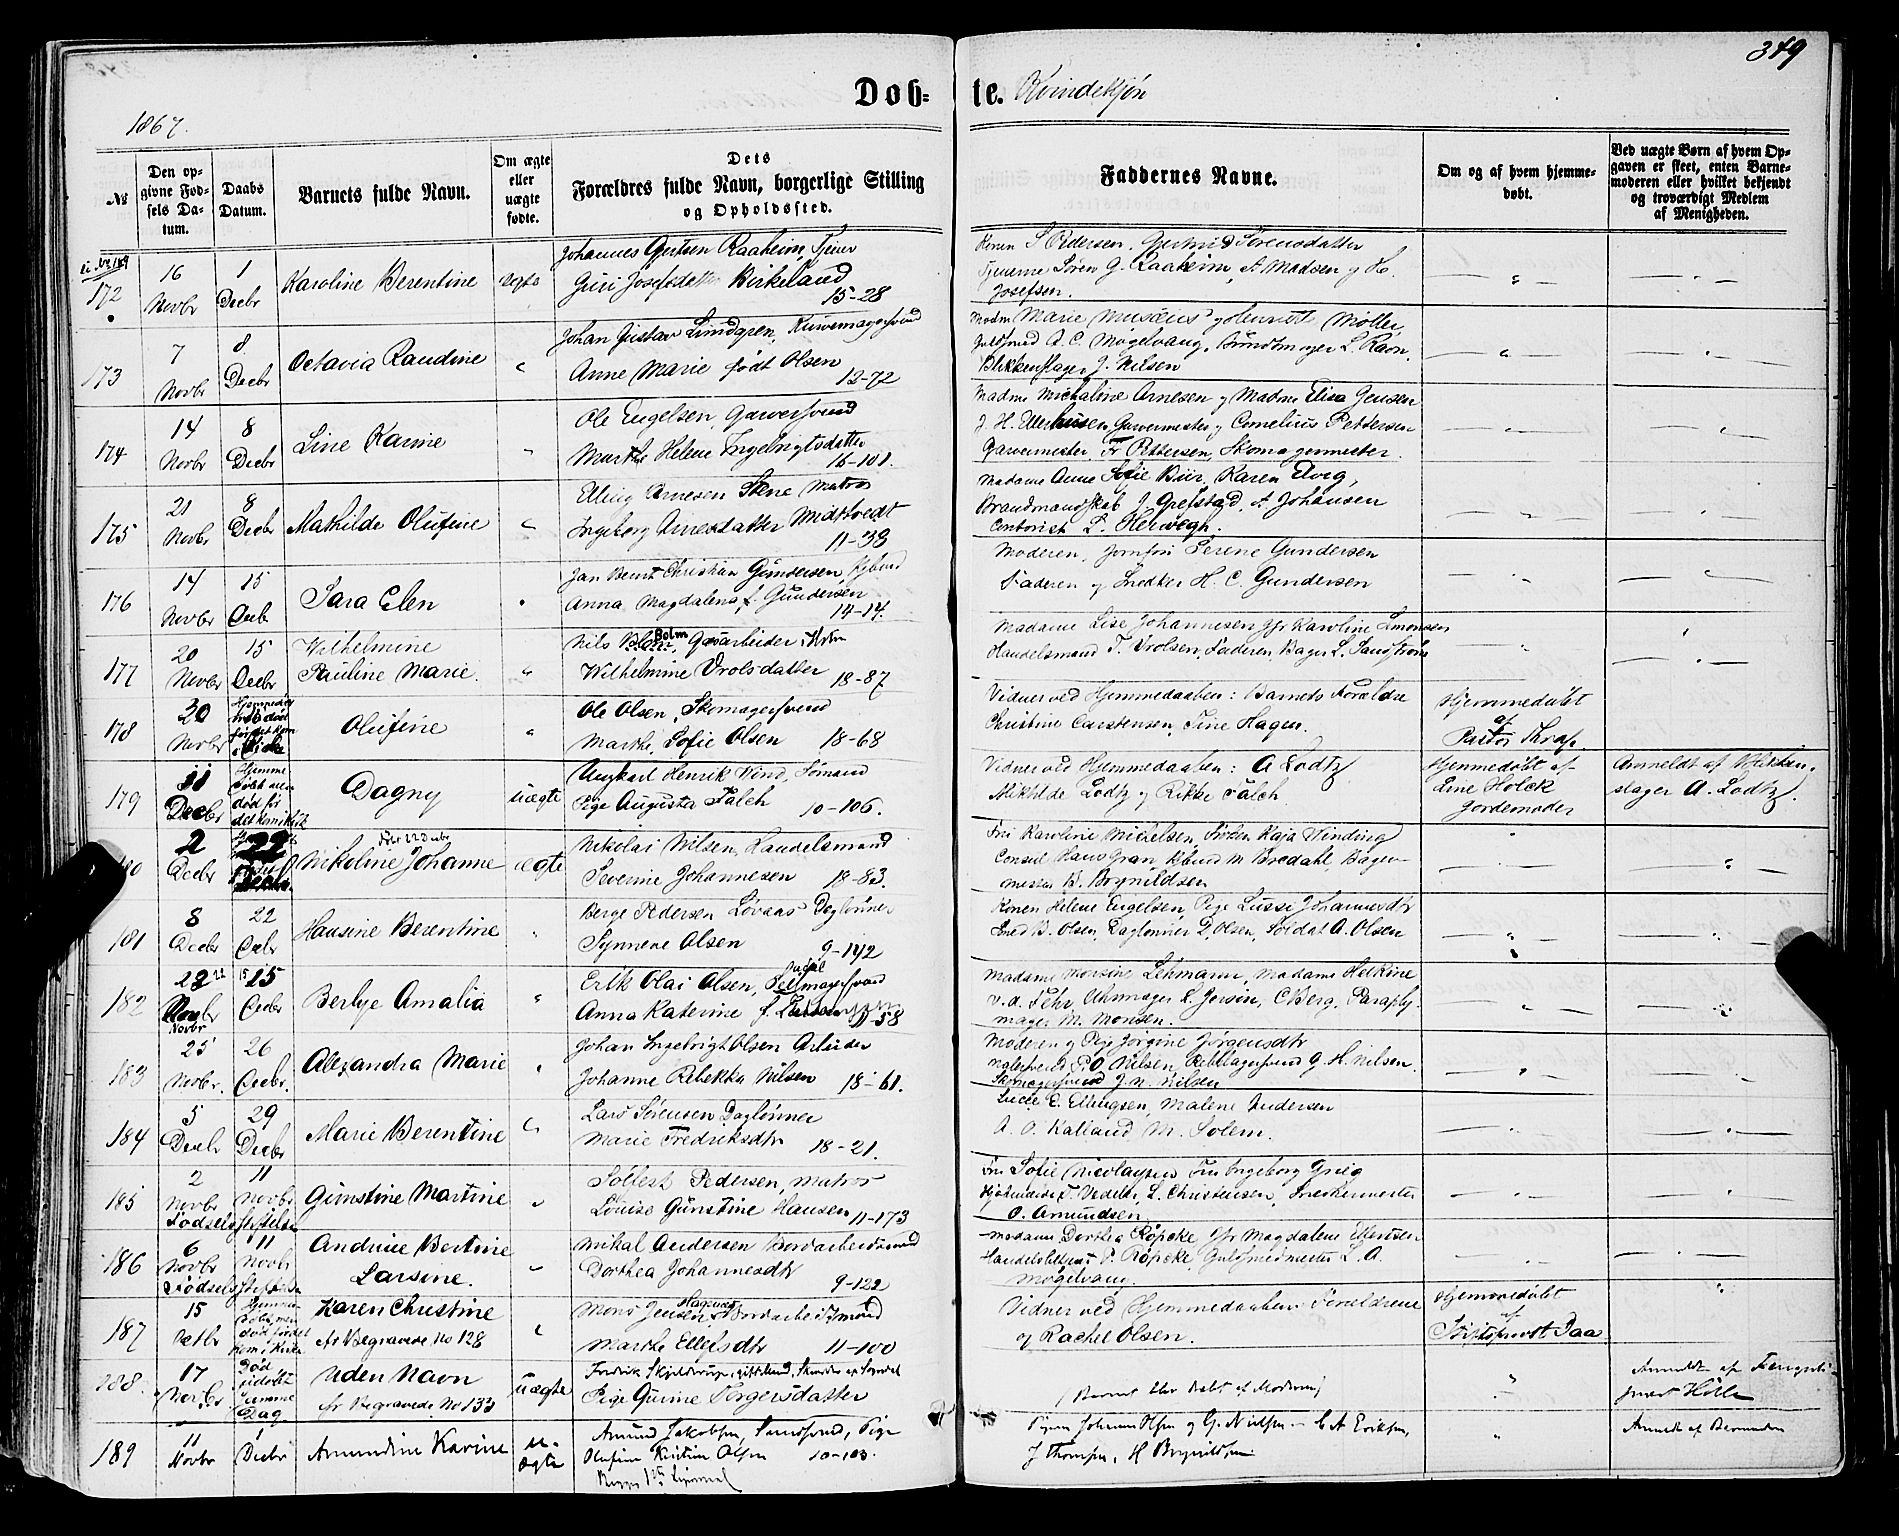 349
Døb= te. Kvindekjøn
1867.
№
Den op=
givne Fød=
sels Da=
tum.
Daabs
Datum.
Barnets fulde Navn.
Om ægte
eller
uægte
fødte.
Dets
Forældres fulde Navn, borgerlige Stilling
og Opholdssted.
Faddernes Navne.
Om og af hvem hjemme=
døbt.
Ved uægte Børn af hvem Op=
gaven er skeet, enten Barne=
moderen eller hvilket bekjendt
og troværdigt Medlem
af Menigheden.
172
16 Novbr
1 Decbr
Karoline Berentine
ægte
Johannes Gjertsen Raaheim, Tjener
Guri Josefsdatter Birkeland
15-28
Konen S. Pedersen, Gertrud Sørensdatter
Tjenerne Søren G. Raaheim, A Madsen og H.
Josefsen.
173
7 Novbr
8 Decbr
Octavia Randine
Johan Gustav Lindgren, Kurvemagersvend
Anne Marie født Olsen
12-72
Madm Marie Musæus Møller
Guldsmed A. C. Møgelvang, L. Ravn.
Blikkenslager J. Nilsen
174
14 Novbr
8 Decbr
Line Karine
Ole Engelsen, Garversvend
Marthe Helene Ingebrigtsdatter
16-101.
Madme Michaline Arnesen og Madme Elisa Jensen
J. H. Ellerhusen, Garvermester og Cornelius Pettersen
Garvermester, Fr Pettersen, Skomagermester.
175
21 Novbr
8 Decbr
Mathilde Olufine
Elling Arnesen Stene Matros
Ingeborg Arnesdatter Midttvedt
11-39
Madame Anne Sofie Karen Elvig,
Brandmandskab J. Grefstad, A Johansen
Contorist L. Herwegh.
176
14 Novbr
15 Decb
Sara Elen
Jan Bernt Christian Gundersen,
Anna Magdalena f. Gundersen
14-14.
Moderen, Jomfru Serene Gundersen
Faderen og Snedker H. C. Gundersen
177
20 Novbr
15 Decbr
Wilhelmine
Pauline Marie.
Nils Bolm, Gasarbeider
Wilhelmine Vrolsdatter
18-87
Madame Lise Johannesen Jfr Karoline Simonsen
Handelsmand T. Vrolsen, Faderen, Bager L. Sandstrøm
178
30 Novbr
Olufine
Ole Olsen, Skomagersvend
Marthe Sofie Olsen
18-68
Vidner ved Hjemmedaaben: Barnets Forældre
Christine Carstensen, Tine Hagen.
Hjemmedøbt
af
Pastor Thrap.
179
11 Decbr
Hjemme
døbt men
død før
det kom i Kirke
Dagny
uægte
Ungkarl Henrik Wind, Sømand
Pige Augusta Falch
10-106.
Vidner ved Hjemmedaaben: A Lodtz
Mikhilde Lodtz og Rikke Falch
Hjemmedøbt af
Line Holck
Jordemoder
Anmeldt af Blikken-
slager A. Lodtz.
180
2 Decbr
Nikoline Johanne
ægte
Nikolai Nilsen, Handelsmand
Severine Johannesen
18-83.
Fru Karoline Michelsen, Frøken Kaja Vinding
Consul Hans Gran, M Bredahl, Bager-
mester B. Brynildsen
181
8 Decbr
22 Decbr
Hansine Berentine
Berge Pedersen Løvaas Daglønner
Synneve Olsen
9-142
Konen Helene Engelsen, Pige Lussi Johannesdtr
Smed B. Olsen, Daglønner P. Olsen, Soldat A. Olsen
182
Novbr
25 Decbr
Berhye Amalia
Erik Olai Olsen, Seilmagersvend
Anna Katerine f.
11-58
Madame Monsine Lehmann, Madame Helkine
v.d. Fehr, Uhrmager L. Jersin, C Berg, Paraply-
mager M. Monsen.
183
25 Novbr.
26 Decbr.
Alexandra Marie
Johan Ingebrigt Olsen Arbeider
Johanne Rebekka Nilsen
18-61.
Moderen og Pige Jørgine Jørgensdtr
Malersvend P. O Nilsen, Rebslagersvend G. H. Nilsen.
Skomagersvend J. N. Nilsen
184
5 Decbr
29 Decbr
Marie Berentine
Lars Sørensen Daglønner
Marie Fredriksdtr
18-21.
Lucie E. Ellingsen, Malene Andersen
A. O. Kalland M. Solem.
185
2 Novbr
11 Novbr
Fødselsstiftelsen
Gunstine Martine
Solfest Pedersen, Matros
Louise Gunstine Hansen
11-173
Fru Sofie Nicolaysen Fru Ingeborg Grieg
L. Christensen, Snedkermester
O. Amundsen
186
6 Novbr
11 Novbr
Fødselsstiftelsen
Andrine Bertine
Larsine.
Mikal Andersen Jordarbeidsmand
Dorthea Johannesdtr
9-122
Madame Dorthea Röpcke Jfr Magdalene Ellertsen
Handelsbetjent P. Röpcke Guldsmedmester L. A.
Møgelvang.
187
15 Octbr
Karen Christine
fr Begravede No 128
Mons Jensen Hagenæs, Jordarbeidsmand
Marthe Ellefsdtr
11-100
Vidner ved Hjemmedaaben Forældrene
og Rachel Olsen.
Hjemmedøbt
af
Stiftsprovst Daa
188.
17 Novbr
Død
udøbt
samme
Dag
Uden Navn
fr Begravede No 133
uægte
Fredrik Skjelderup, gift Mand,
Pige Gurine Torgersdatter
Anmeldt af Fængsels-
præst Hølle
189
11 Novbr
Decbr
Amundine Karine
u-
ægte
Amund Jakobsen, Smedsvend, Pige
Olufine Kristine Olsen
10-103
Pigen Johanne Olsen og G. Nielsen – C A Eriksen,
J Thomsen, H Brynildsen.
Anmeldt af Barnemoderen